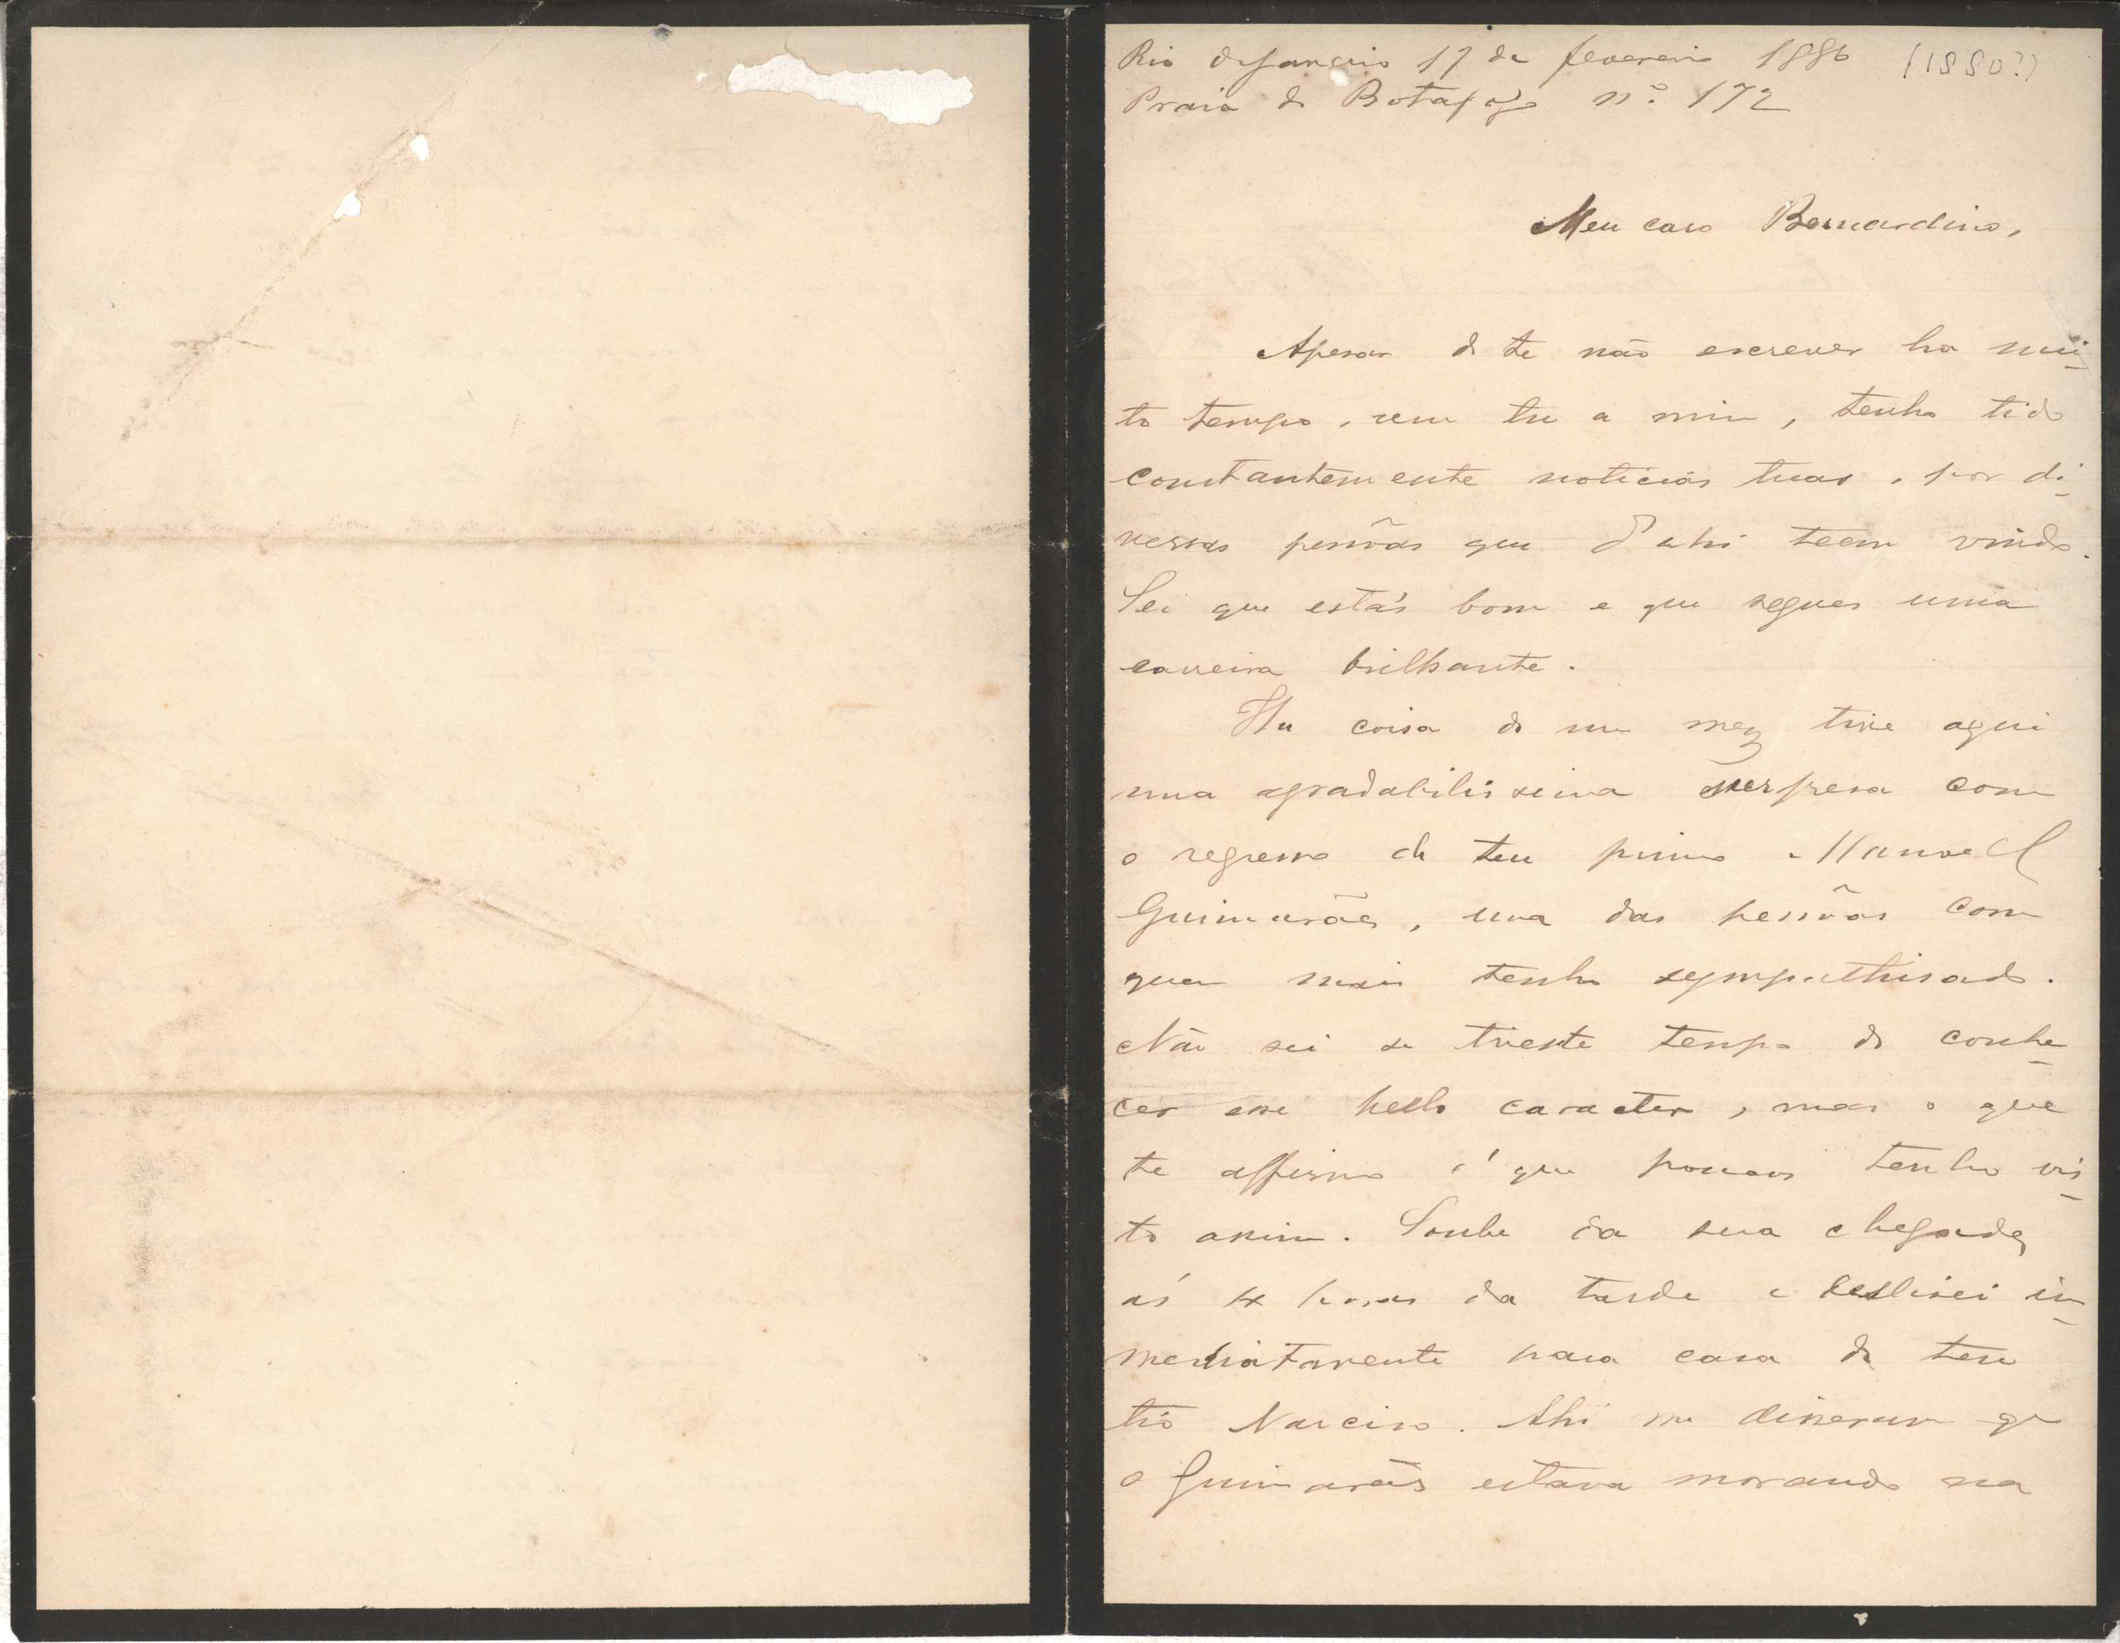 Rio de Janeiro 17 de fevereiro 1886 (1880?)
Praia de Botafogo nº 172
Meu caro Bernardino,
Apesar de te não escrever ha mui-
to tempo, nem tu a mim, tenho tido
constantemente noticias tuas, por di-
versas pessôas que d'ahi teem vindo.
Sei que estás bom e que segues uma
carreira brilhante.
Ha coisa de um mez tive aqui
uma agradabilissima surpresa com
o regresso de teu primo Manoel
Guimarães, uma das pessôas com
quem mais tenho sympathisado.
Não sei se tiveste tempo de conhe-
cer esse bello caracter, mas o que
te affirmo é que poucos tenho vis-
to assim. Soube da sua chegada,
ás horas da tarde e im-
mediatamente para casa de teu
tio Narciso. Ahi me disseram que
o Guimarães estava morando na